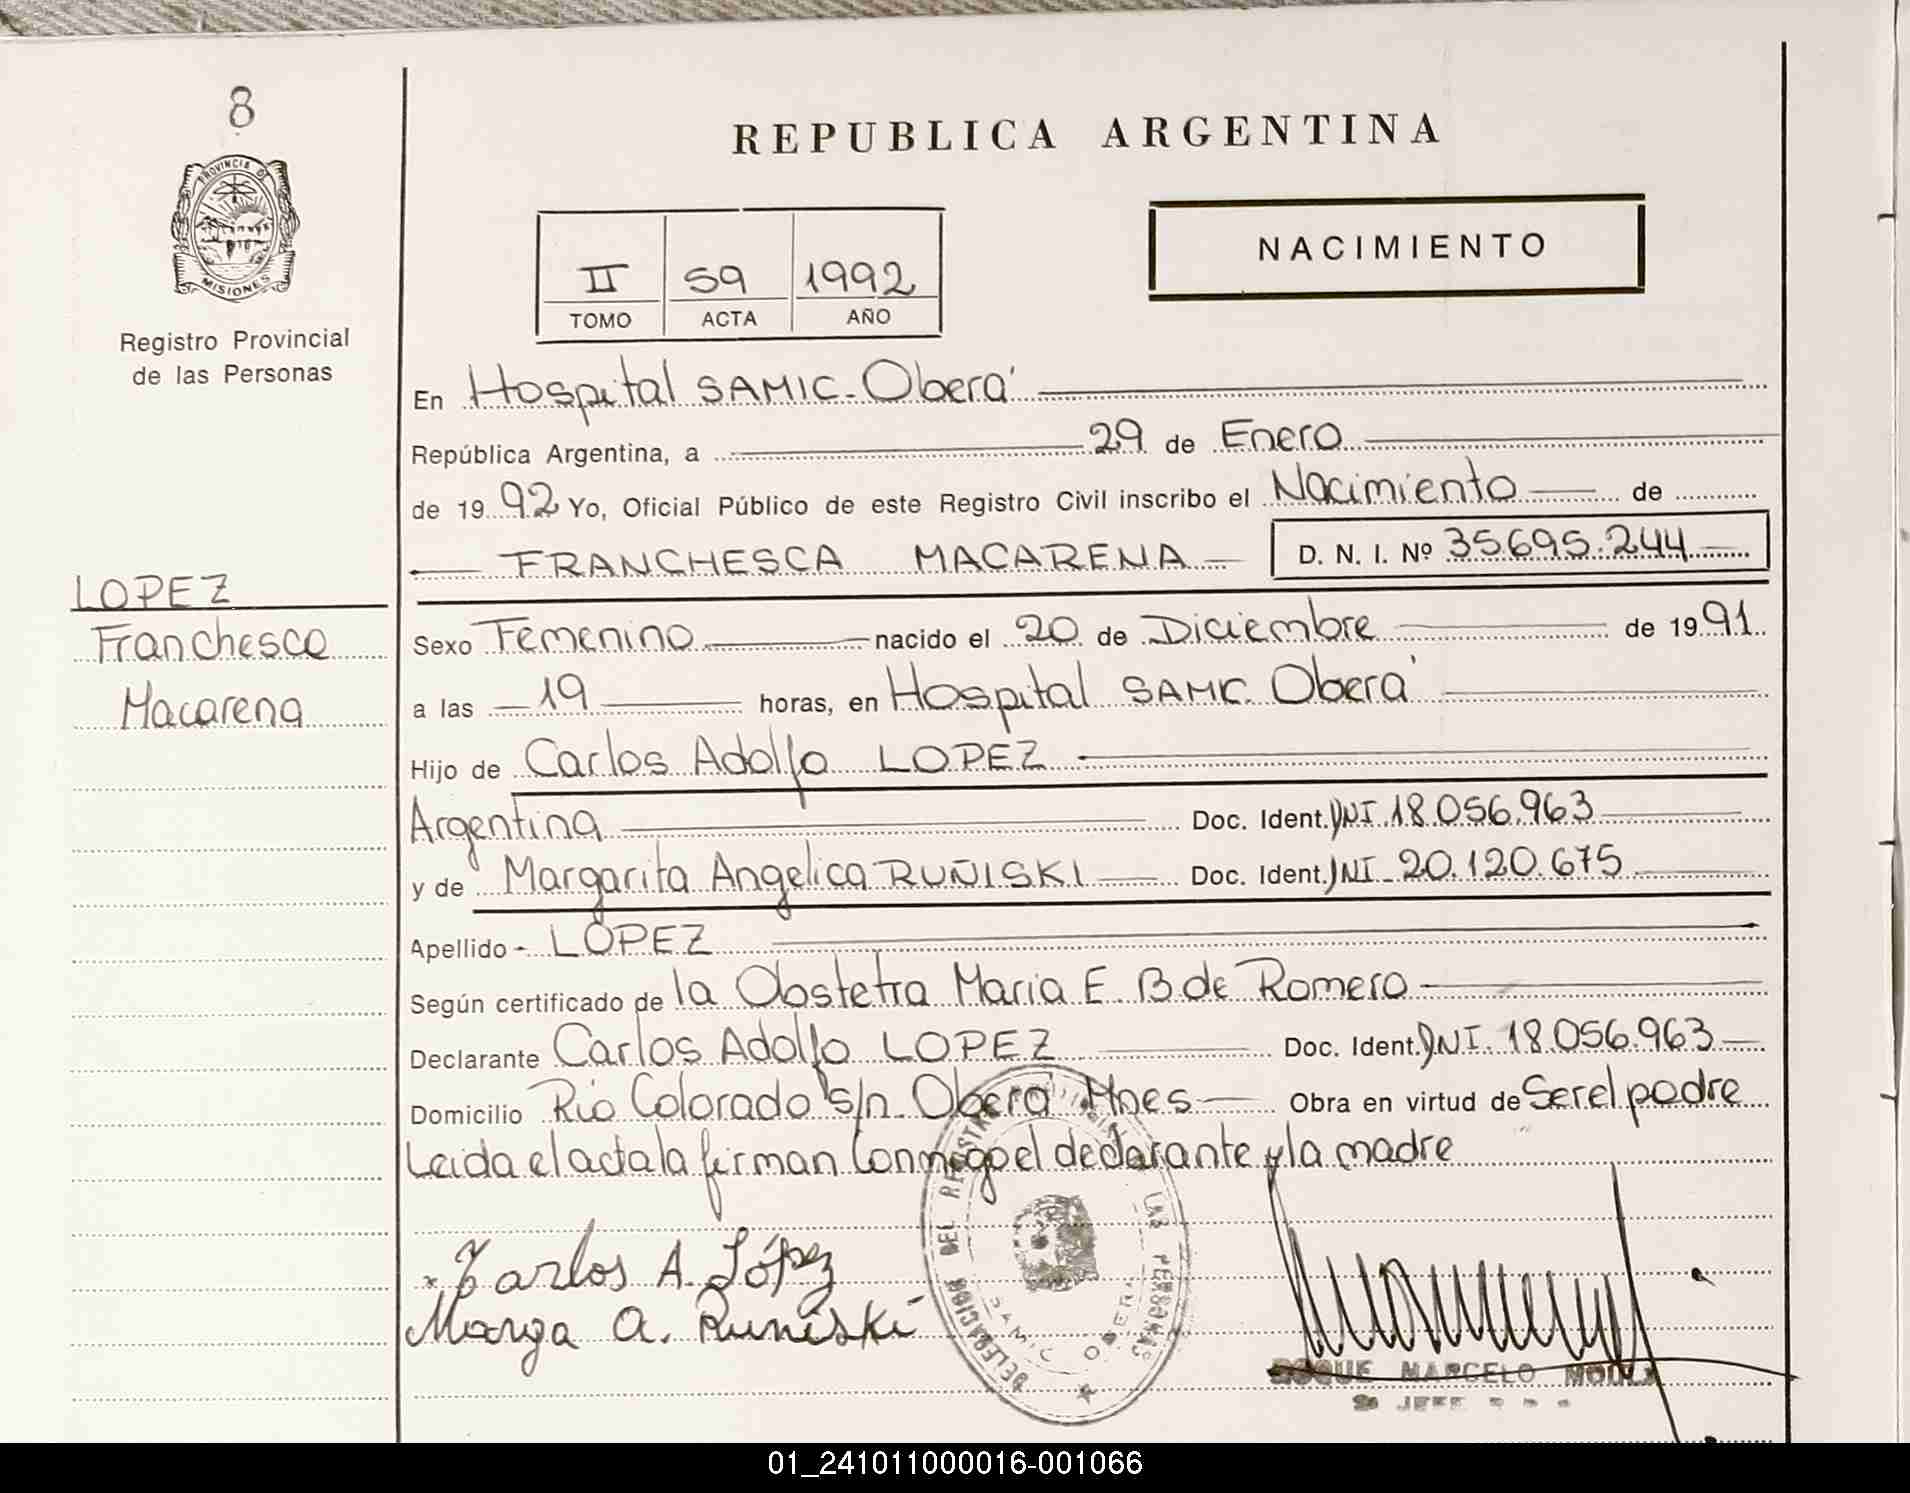 8
PROVINCIA DE
MISIONES
Registro Provincial
de las Personas
LOPEZ
Franchesca
Macarena
REPUBLICA ARGENTINA
NACIMIENTO
II 59 1992
TOMO ACTA AÑO
En Hospital SAMIC-Oberá
República Argentina, a 29 de Enero
de 1992 Yo, Oficial Público de este Registro Civil inscribo el Nacimiento de
FRANCHESCA MACARENA D. N. I. Nº 35.695.244
Sexo Femenino nacido el 20 de Diciembre de 1991
a las 19 horas, en Hospital SAMIC. Oberá
Hijo de Carlos Adolfo LOPEZ
Argentina Doc. Ident. DNI 18.056.963
y de Margarita Angelica RUÑISKI Doc. Ident. DNI-20.120.675
Apellido - LOPEZ
Según certificado de la Obstetra Maria E. B de Romero
Declarante Carlos Adolfo LOPEZ Doc. Ident. DNI. 18.056.963
Domicilio Rio Colorado s/n. Oberá Mnes Obra en virtud de Ser el padre
Leida el acta la firman conmigo el declarante y la madre
Karlos A. López
Marga A. Ruñiski
DELEGACION DEL REGISTRO
LAS PERSONAS
SAMIC OBERA
ROQUE MARCELO
JEFE
01_241011000016-001066